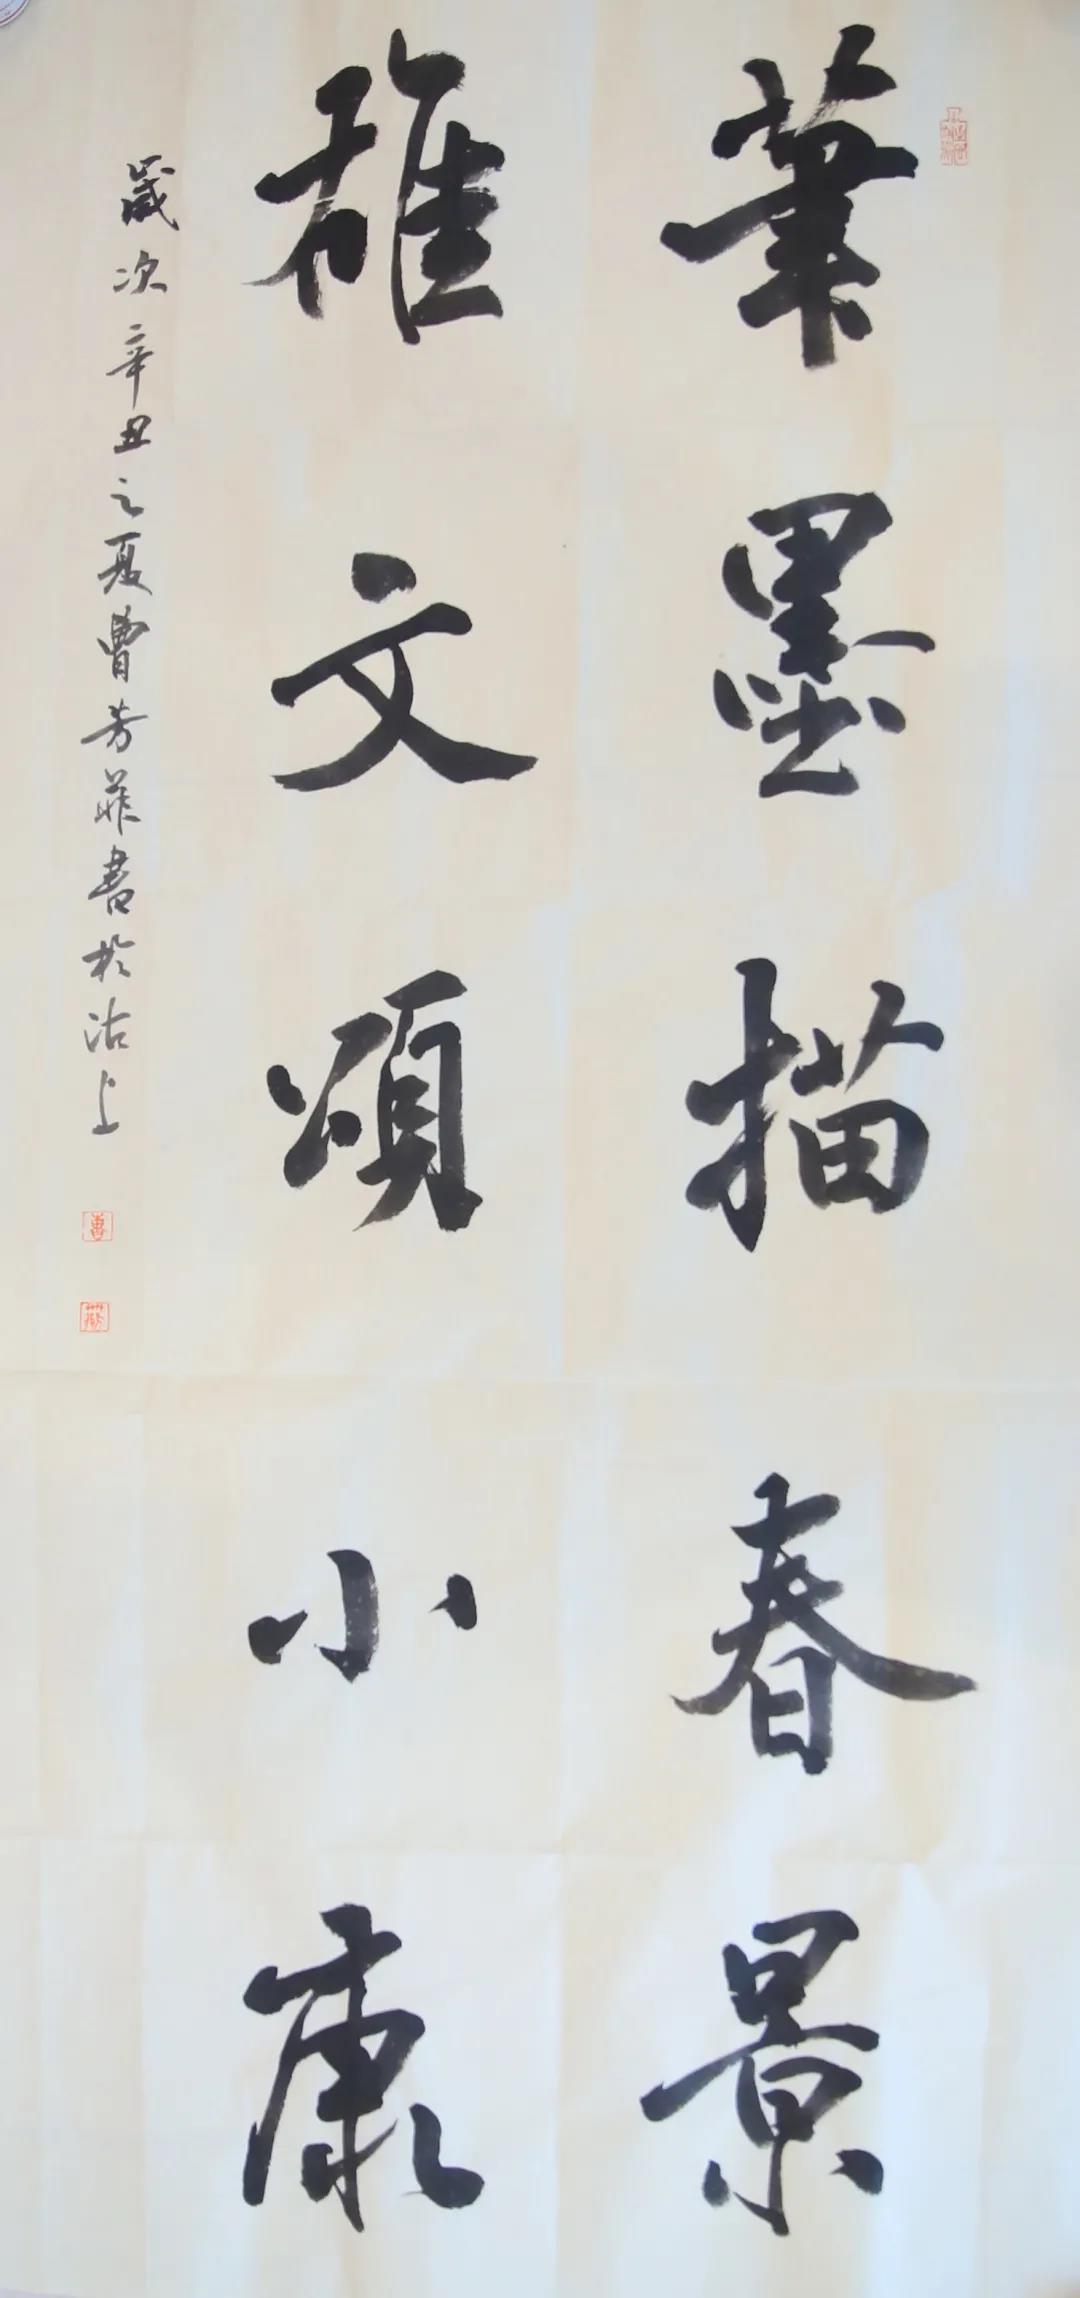 筆墨描春景
雄文頌小康
歲次辛丑之夏曹芳菲書於沽上